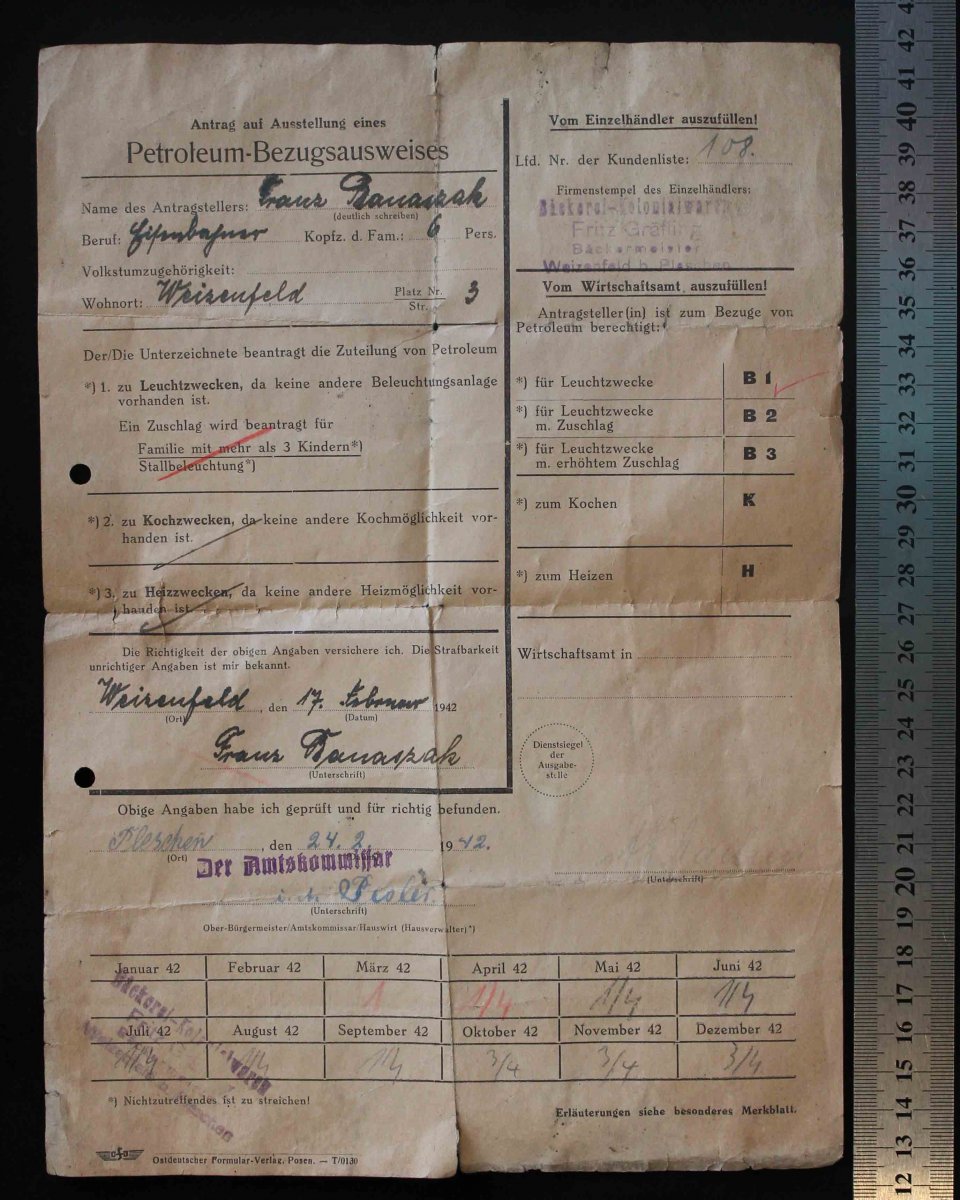 Antrag auf Ausstellung eines
Petroleum-Bezugsausweises
Name des Antragstellers: Franz Banaszak
(deutlich schreiben)
Beruf: Eisenbahner Kopfz. d. Fam.: 6 Pers.
Volkstumzugehörigkeit:
Wohnort: Weizenfeld Platz Nr. 3
Str.
Der/Die Unterzeichnete beantragt die Zuteilung von Petroleum
*) 1. zu Leuchtzwecken, da keine andere Beleuchtungsanlage
vorhanden ist.
Ein Zuschlag wird beantragt für
Familie mit mehr als 3 Kindern*)
Stallbeleuchtung*)
*) 2. zu Kochzwecken, da keine andere Kochmöglichkeit vor-
handen ist.
*) 3. zu Heizzwecken, da keine andere Heizmöglichkeit vor-
handen ist.
Die Richtigkeit der obigen Angaben versichere ich. Die Strafbarkeit
unrichtiger Angaben ist mir bekannt.
Weizenfeld, den 17. Februar 1942
(Ort) (Datum)
Franz Banaszak
(Unterschrift)
Vom Einzelhändler auszufüllen!
Lfd. Nr. der Kundenliste: 108.
Firmenstempel des Einzelhändlers:
Bäckerei-Kolonialwaren
Fritz Gräfling
Bäckermeister
Weizenfeld b. Pleschen
Vom Wirtschaftsamt auszufüllen!
Antragsteller(in) ist zum Bezuge von
Petroleum berechtigt:
*) für Leuchtzwecke B 1
*) für Leuchtzwecke
m. Zuschlag B 2
*) für Leuchtzwecke
m. erhöhtem Zuschlag B 3
*) zum Kochen K
*) zum Heizen H
Wirtschaftsamt in
Dienstsiegel
der
Ausgabe-
stelle
(Unterschrift)
Obige Angaben habe ich geprüft und für richtig befunden.
Pleschen, den 24. 2. 1942.
(Ort)
Der Amtskommissar
(Unterschrift)
Ober-Bürgermeister/Amtskommissar/Hauswirt (Hausverwalter)*)
Januar 42 Februar 42 März 42 April 42 Mai 42 Juni 42
1 1/4 1/4 1/4
Juli 42 August 42 September 42 Oktober 42 November 42 Dezember 42
1/4 1/4 1/4 3/4 3/4 3/4
Bäckerei-Kolonialwaren
*) Nichtzutreffendes ist zu streichen!
Erläuterungen siehe besonderes Merkblatt.
ofo
Ostdeutscher Formular-Verlag, Posen. — T/0130
42
41
40
39
38
37
36
35
34
33
32
31
30
29
28
27
26
25
24
23
22
21
20
19
18
17
16
15
14
13
12